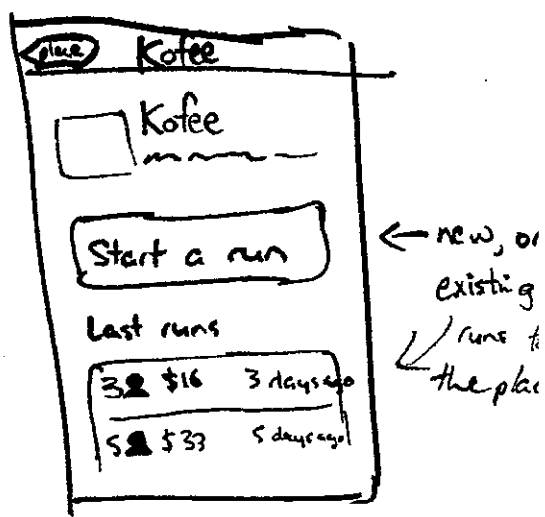 place
Kofee
Kofee
Start a run
Last runs
3 $16 3 days ago
5 $33 5 days ago
new, or
existing
runs
the plac